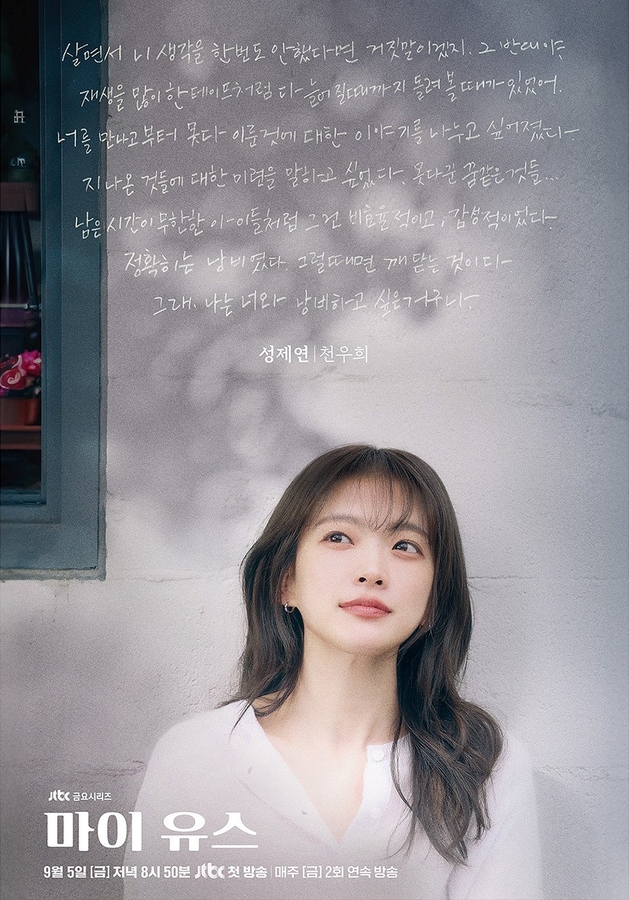 살면서 니 생각을 한번도 안했다면 거짓말이겠지. 그 반대야
재생을 많이 한 테이프처럼 다 늘어질때까지 돌려 볼 때가 있었어.
너를 만나고부터 못다 이룬것에 대한 이야기를 나누고 싶어졌다
지나온 것들에 대한 미련을 말하고 싶었다. 못다꾼 꿈같은 것들...
남은 시간이 무한한 아이들처럼 그건 비효율적이고, 감성적이었다.
정확히는 낭비였다. 그럴때면 깨닫는 것이다
그래, 나는 너와 낭비하고 싶은거구나.
성제연|천우희
Jtbc 금요시리즈
마이 유스
9월 5일 [금] 저녁 8시 50분 Jtbc 첫 방송 | 매주 [금] 2회 연속 방송